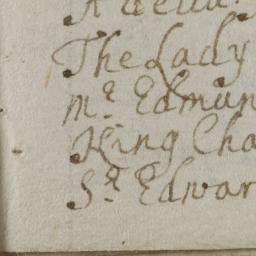 The Lady
Mr. Edmun
King Cha
Sr. Edwar